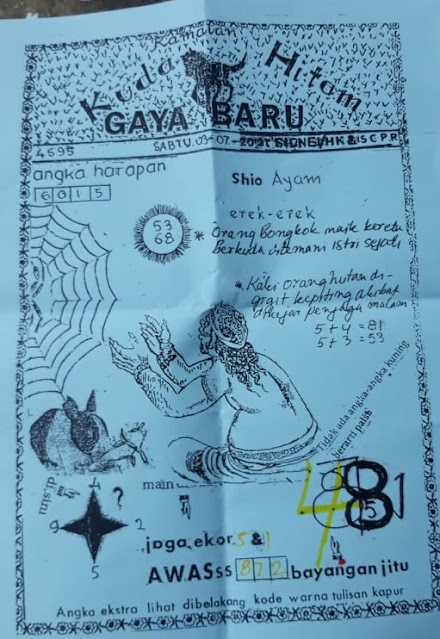 Ramalan
Kuda Hitam
GAYA BARU
4695
SABTU. 03-07-2021 SIDNEY/HK & IS C P R
angka harapan
6 0 1 5
Shio Ayam
erek-erek
53
68
* Orang Bongkok naik kereta
Berkuda ditemani istri sejati
* Kaki orang hutan di-
gigit kepiting akibat
dikejar penjaga malam
5 + 4 = 81
5 + 3 = 53
Tidak ada angka-angka kuning
berarti palsu
disini
4
?
9
2
5
main
4
8
5
1
jaga ekor 5 & 1
AWASss 8 7 2 bayangan jitu
Angka ekstra lihat dibelakang kode warna tulisan kapur